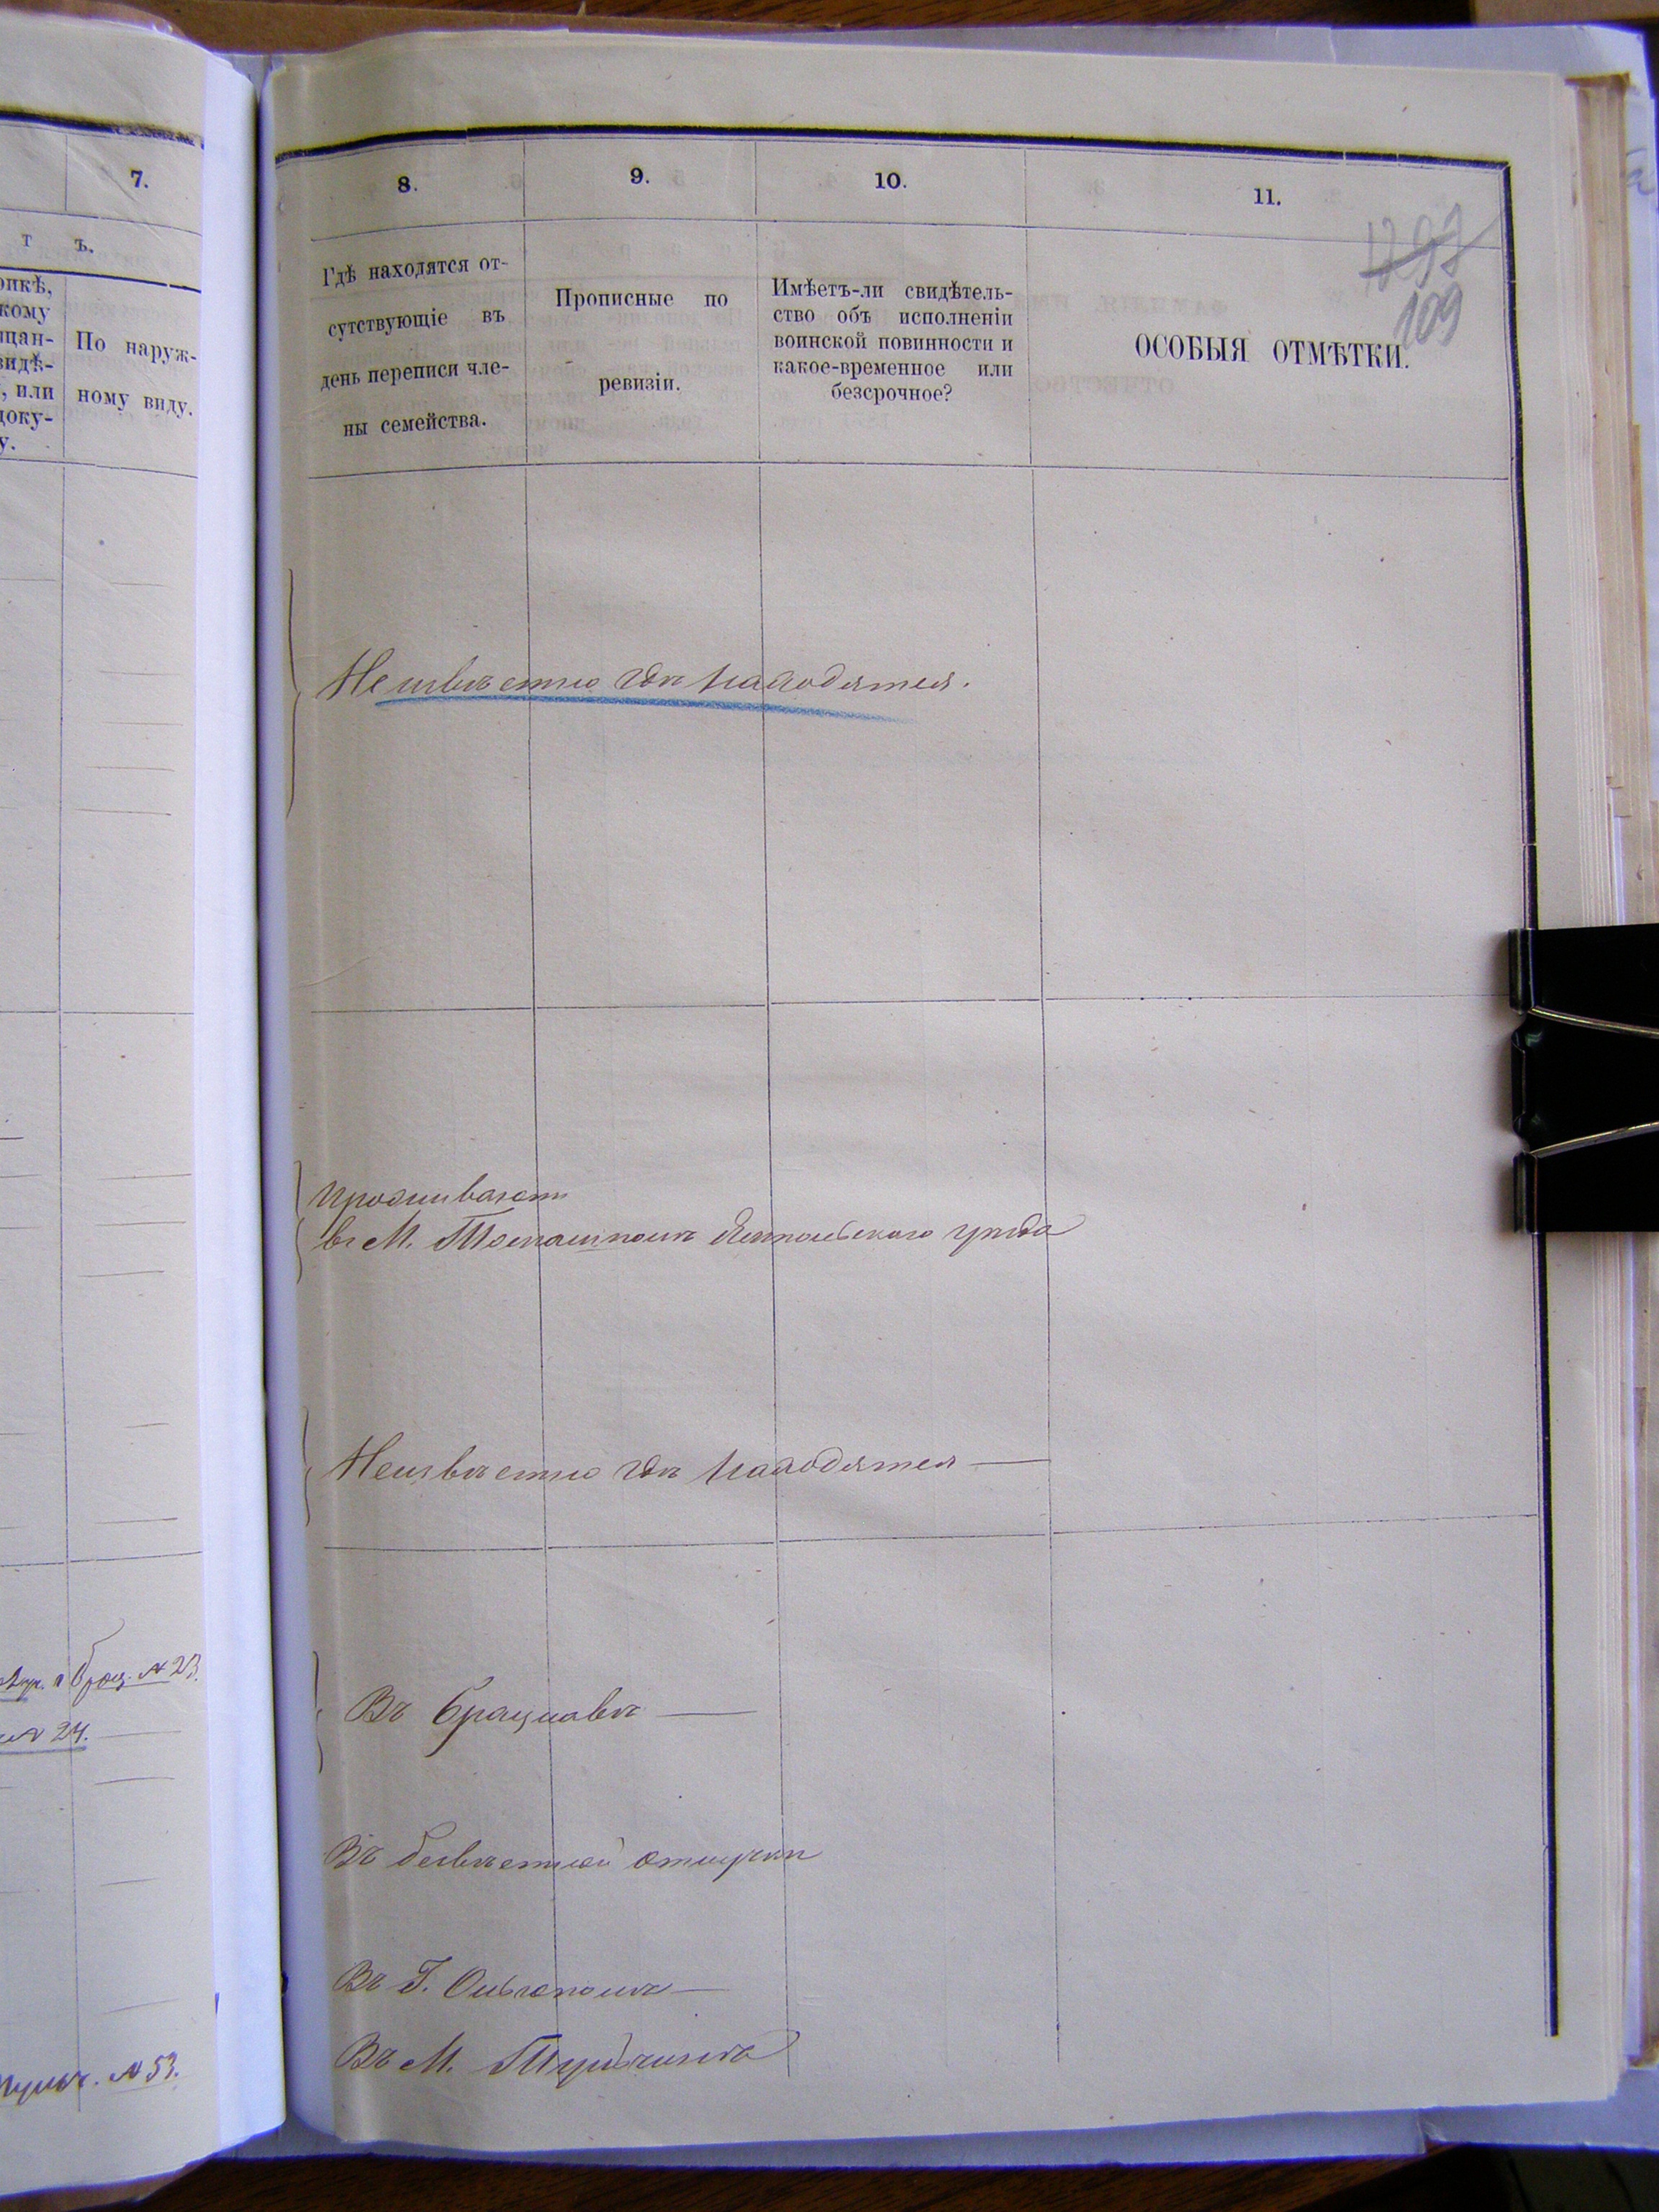 7.
т ъ.
По наруж-
ному виду.
№ 23.
№ 24.
№ 53.
8.
9.
10.
11.
1297
109
Гдѣ находятся от-
сутствующіе въ
день переписи чле-
ны семейства.
Прописные по
ревизіи.
Имѣетъ-ли свидѣтель-
ство объ исполненіи
воинской повинности и
какое-временное или
безсрочное?
ОСОБЫЯ ОТМѢТКИ.
Неизвѣстно гдѣ находятся.
Проживаютъ
въ М. Томашполѣ Ямпольскаго уѣзда
Неизвѣстно гдѣ находятся
Въ Брацлавѣ
Въ безвѣстной отлучкѣ
Въ Г. Ольгополѣ
Въ М. Тульчинѣ